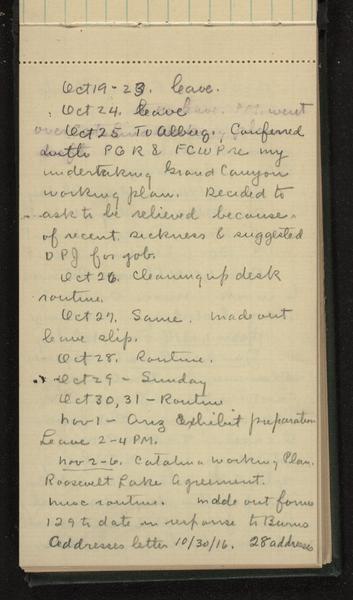 Oct 19-23. Leave.
Oct 24. Leave
Oct 25 To Albuq., Conferred
with PGR & FCWP re my
undertaking Grand Canyon
working plan. Decided to
ask to be relieved because
of recent sickness & suggested
DPJ for job.
Oct 26. Cleaning up desk
routine.
Oct 27. Same. Made out
leave slip.
Oct 28. Routine.
Oct 29 - Sunday
Oct 30, 31 - Routine
Nov 1 - Ariz Exhibit preparation
Leave 2-4 PM.
Nov 2-6. Catalina Working Plan.
Roosevelt Lake Agreement.
Misc routine. Made out forms
129 to date in response to Burns
Addresses letter 10/30/16. 28 addresses